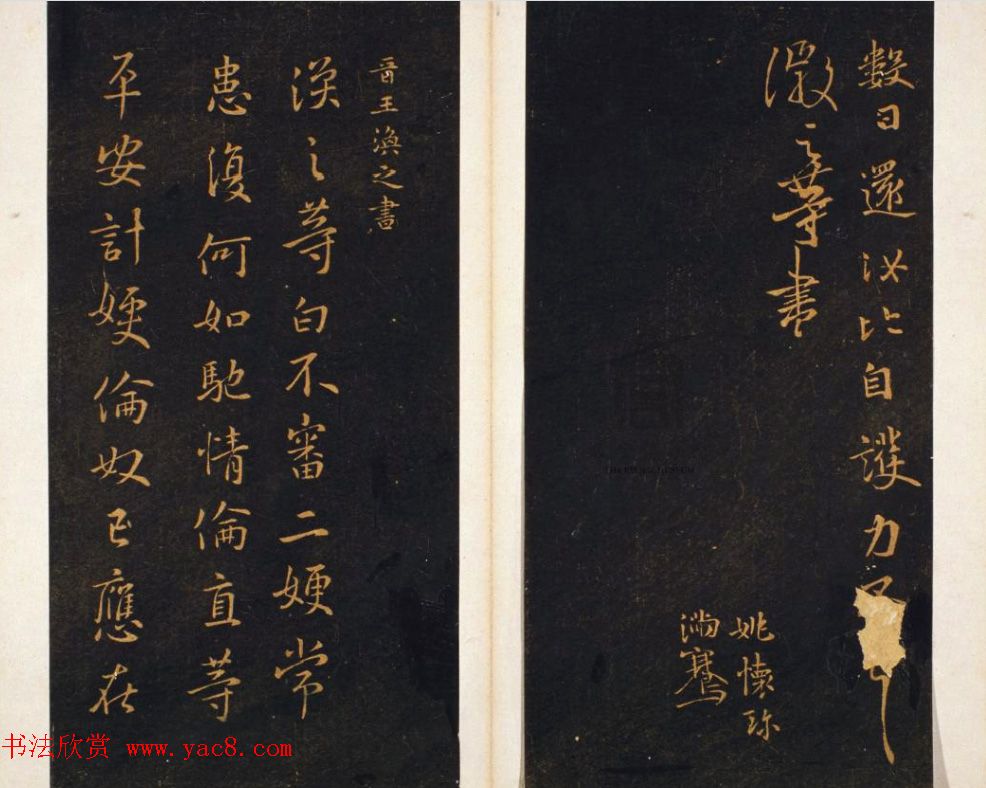 數日還汝比自護力不
徽之等書
姚懷珍
滿騫
晉王渙之書
渙之等白不審二嫂常
患復何如馳情倫直等
平安計嫂倫奴已應在
书法欣赏 www.yac8.com